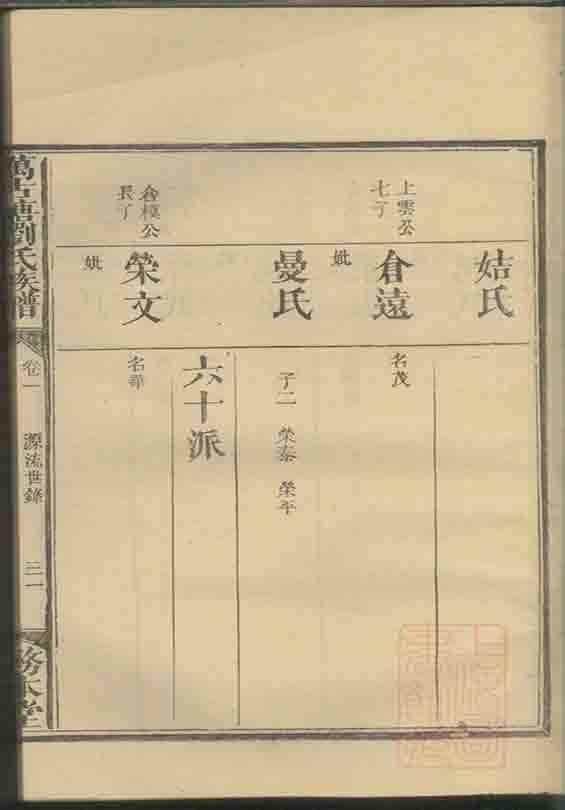 姞氏
上雲公
七子
倉遠
妣
名茂
曼氏
子二 榮泰 榮年
六十派
倉模公
長子
榮文
妣
名華
萬古塘劉氏族譜
卷一
源流世錄
三一
務本堂